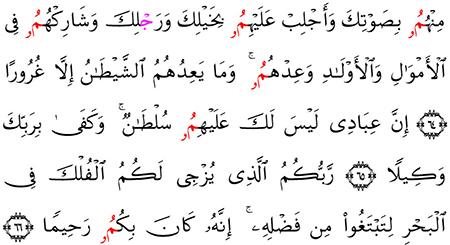 مِنْهُمُۥ بِصَوْتِكَ وَأَجْلِبْ عَلَيْهِمُۥ بِخَيْلِكَ وَرَجْلِكَ وَشَارِكْهُمُۥ فِى
ٱلْأَمْوَٰلِ وَٱلْأَوْلَٰدِ وَعِدْهُمُۥ ۚ وَمَا يَعِدُهُمُ ٱلشَّيْطَٰنُ إِلَّا غُرُورًا
﴿٦٤﴾ إِنَّ عِبَادِى لَيْسَ لَكَ عَلَيْهِمُۥ سُلْطَٰنٌ ۚ وَكَفَىٰ بِرَبِّكَ
وَكِيلًا ﴿٦٥﴾ رَّبُّكُمُ ٱلَّذِى يُزْجِى لَكُمُ ٱلْفُلْكَ فِى
ٱلْبَحْرِ لِتَبْتَغُوا۟ مِن فَضْلِهِۦٓ ۚ إِنَّهُۥ كَانَ بِكُمُۥ رَحِيمًا ﴿٦٦﴾